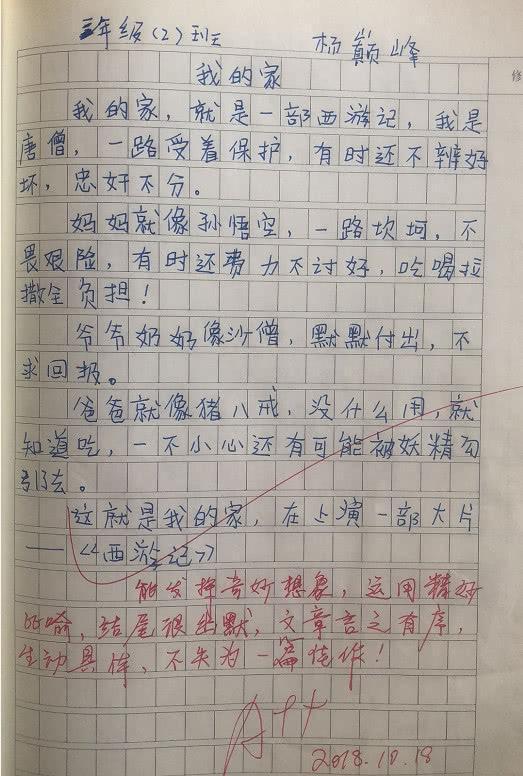 三年级(2)班 杨巅峰
修
我的家
我的家，就是一部西游记，我是
唐僧，一路受着保护，有时还不辨好
坏，忠奸不分。
妈妈就像孙悟空，一路坎坷，不
畏艰险，有时还费力不讨好，吃喝拉
撒全负担！
爷爷奶奶像沙僧，默默付出，不
求回报。
爸爸就像猪八戒，没什么用，就
知道吃，一不小心还有可能被妖精勾
引去。
这就是我的家，在上演一部大片
——《西游记》
能发挥奇妙想象，运用精好
比喻，结尾很幽默，文章言之有序，
生动具体，不失为一篇佳作！
A++
2018.10.18